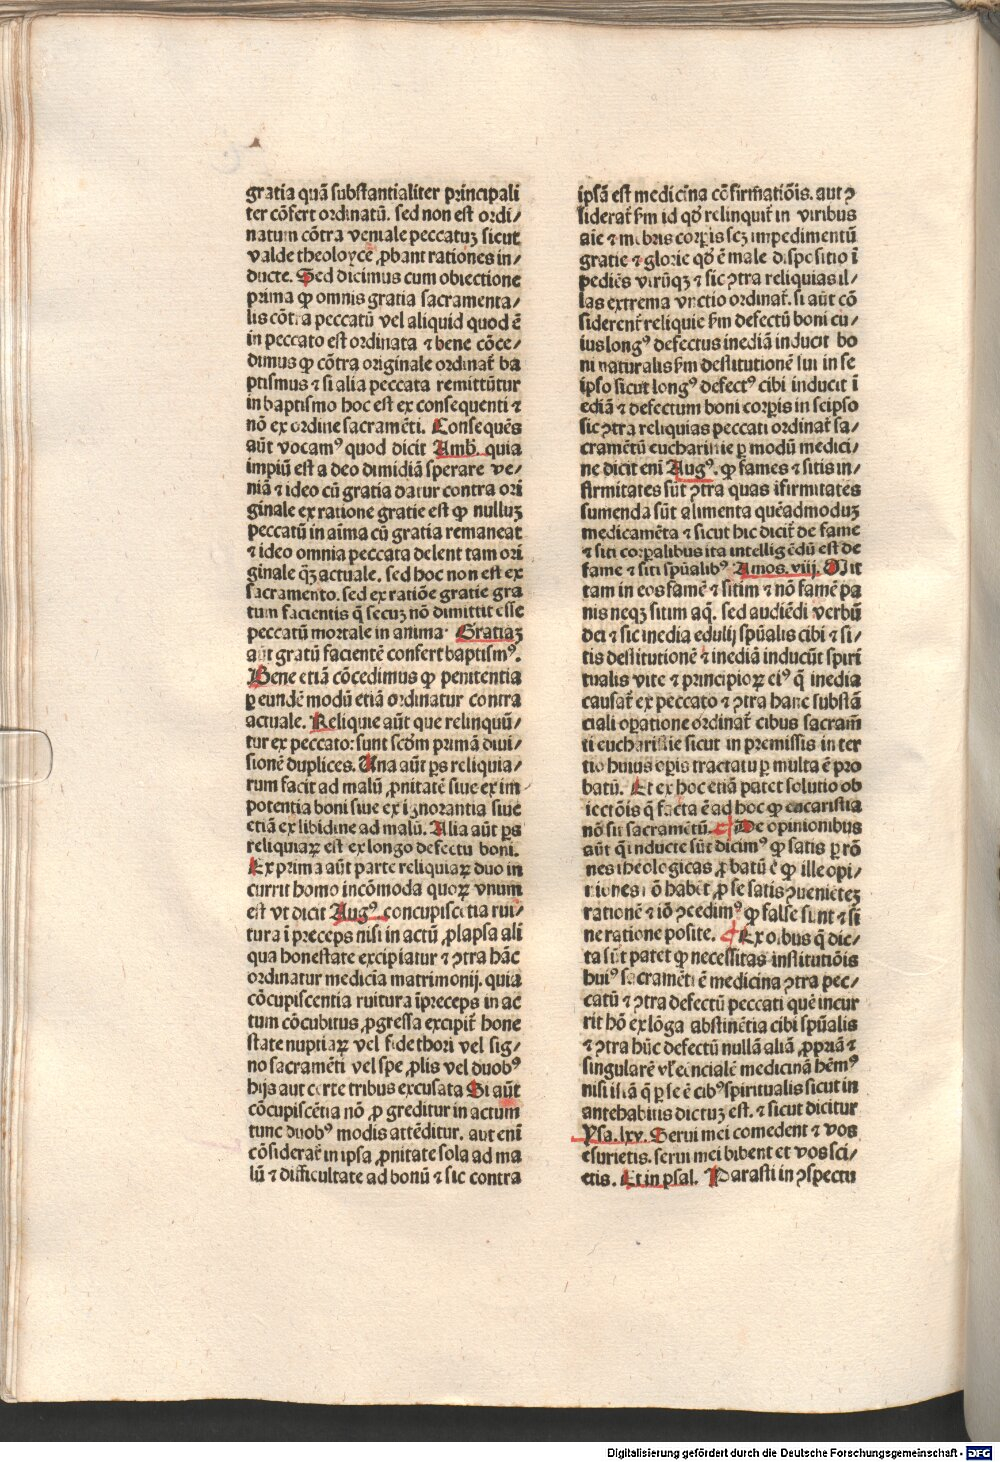 gratia quā substantialiter principali
ter cōfert ordinatū. sed non est ordi/
natum cōtra veniale peccatuꝫ sicut
valde theoloyce ꝓbant rationes in/
ducte. Sed dicimus cum obiectione
prima ꝙ omnis gratia sacramenta/
lis cōtra peccatū vel aliquid quod ē
in peccato est ordinata ⁊ bene cōce/
dimus ꝙ cōtra originale ordinat̄ ba
ptismus ⁊ si alia peccata remittūtur
in baptismo hoc est ex consequenti ⁊
nō ex ordine sacramēti. Consequēs
aūt vocamꝰ quod dicit Amb̄. quia
impiū est a deo dimidiā sperare ve/
niā ⁊ ideo cū gratia datur contra ori
ginale ex ratione gratie est ꝙ nulluꝫ
peccatū in aīma cū gratia remaneat
⁊ ideo omnia peccata delent tam ori
ginale qꝫ actuale. sed hoc non est ex
sacramento. sed ex ratiōe gratie gra
tum facientis q̄ secuꝫ nō dimittit esse
peccatū mortale in anima. Gratiaꝫ
aūt gratū facientē confert baptismꝰ.
Bene etiā cōcedimus ꝙ penitentia
ꝑ eundē modū etiā ordinatur contra
actuale. Reliquie aūt que relinquū/
tur ex peccato: sunt scdm̄ primā diui/
sionē duplices. Una aūt ps reliquia/
rum facit ad malū ꝓnitatē siue ex im
potentia boni siue ex ignorantia siue
etiā ex libidine ad malū. Alia aūt p̄s
reliquiaꝝ est ex longo defectu boni.
Ex prima aūt parte reliquiaꝝ duo in
currit homo incōmoda quoꝝ vnum
est vt dicit Augꝰ. concupiscētia rui/
tura ī preceps nisi in actū ꝓlapsa ali
qua honestate excipiatur ⁊ ꝯtra hāc
ordinatur medicīa matrimonij. quia
cōcupiscentia ruitura īpreceps in ac
tum cōcubitus ꝓgressa excipit̄ hone
state nuptiaꝝ vel fide thori vel sig/
no sacramēti vel spe ꝓlis vel duobꝰ
hijs aut certe tribus excusata Si aūt
cōcupiscētia nō ꝓgreditur in actum
tunc duobꝰ modis attēditur. aut enī
cōsiderat̄ in ipsa ꝓnitate sola ad ma
lū ⁊ difficultate ad bonū ⁊ sic contra
ipsā est medicina cōfirmatiōis. aut ꝯ
siderat̄ ẜm id qđ relinquit̄ in viribus
aīe ⁊ mēbris corꝑis scꝫ impedimentū
gratie ⁊ glorie qđ ē male dispositio ī
pediēs vtrūqꝫ ⁊ sic ꝯtra reliquias il/
las extrema vnctio ordinat̄. si aūt cō
siderent̄ reliquie ẜm defectū boni cu/
ius longꝰ defectus inediā inducit bo
ni naturalis ẜm destitutionē sui in se
ipso sicut longꝰ defectꝰ cibi inducit ī
ediā ⁊ defectum boni corꝑis in seipso
sic ꝯtra reliquias peccati ordinat̄ sa/
cramētū eucharistie ꝑ modū medici/
ne dicit enī Augꝰ. ꝙ fames ⁊ sitis in/
firmitates sūt ꝯtra quas īfirmitates
sumenda sūt alimenta quēadmoduꝫ
medicamēta ⁊ sicut hic dicit̄ de fame
⁊ siti corꝑalibus ita intelligēdū est de
fame ⁊ siti spūalibꝰ Amos. viij. Mit
tam in eos famē ⁊ sitim ⁊ nō famē pa
nis neqꝫ sitim aq̄. sed audiēdi verbū
dei ⁊ sic inedia edulij spūalis cibi ⁊ si/
tis destitutionē ⁊ inediā inducūt spiri
tualis vite ⁊ principioꝝ eiꝰ q̄ inedia
causat̄ ex peccato ⁊ ꝯtra hanc substā
ciali oꝑatione ordinat̄ cibus sacram̄
ti eucharistie sicut in premissis in ter
tio huius oꝑis tractatu ꝑ multa ē pro
batū. Et ex hoc etiā patet solutio ob
iectōis q̄ facta ē ad hoc ꝙ eucaristia
nō sit sacramētū. De opinionibus
aūt q̄ inducte sūt dicimꝰ ꝙ satis ꝑ rō
nes theologicas ꝓbatū ē ꝙ ille opi/
niones nō habēt ꝓ se satis ꝯuenietez
rationē ⁊ iō ꝯcedimꝰ ꝙ false sunt ⁊ si
ne ratione posite. Ex oībus q̄ dic/
ta sūt patet ꝙ necessitas institutiōis
huiꝰ sacramēti ē medicina ꝯtra pec/
catū ⁊ ꝯtra defectū peccati quē incur
rit hō ex lōga abstinētia cibi spūalis
⁊ ꝯtra hūc defectū nullā aliā ꝓpriā ⁊
singularē vl essencialē medicinā hēmꝰ
nisi istā q̄ ꝑ se ē cibꝰ spiritualis sicut in
antehabitis dictuꝫ est. ⁊ sicut dicitur
Ysa. lxv. Serui mei comedent ⁊ vos
esurietis. serui mei bibent et vos sci/
etis. Et in psal. Parasti in ꝯspectu
Digitalisierung gefördert durch die Deutsche Forschungsgemeinschaft - DFG